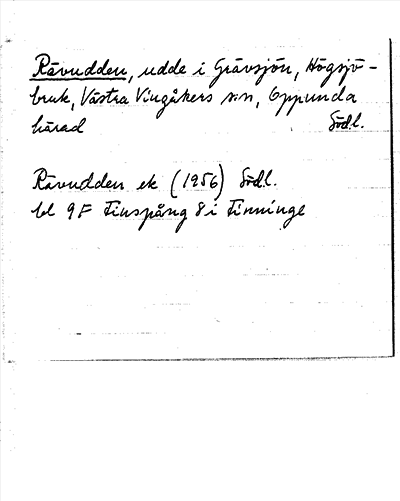 Rävudden, udde i Grävsjön, Högsjö-
bruk, Västra Vingåkers sn, Oppunda
härad Södl.
Rävudden ek (1956) Södl.
bl 9F Finspång 8i Finninge